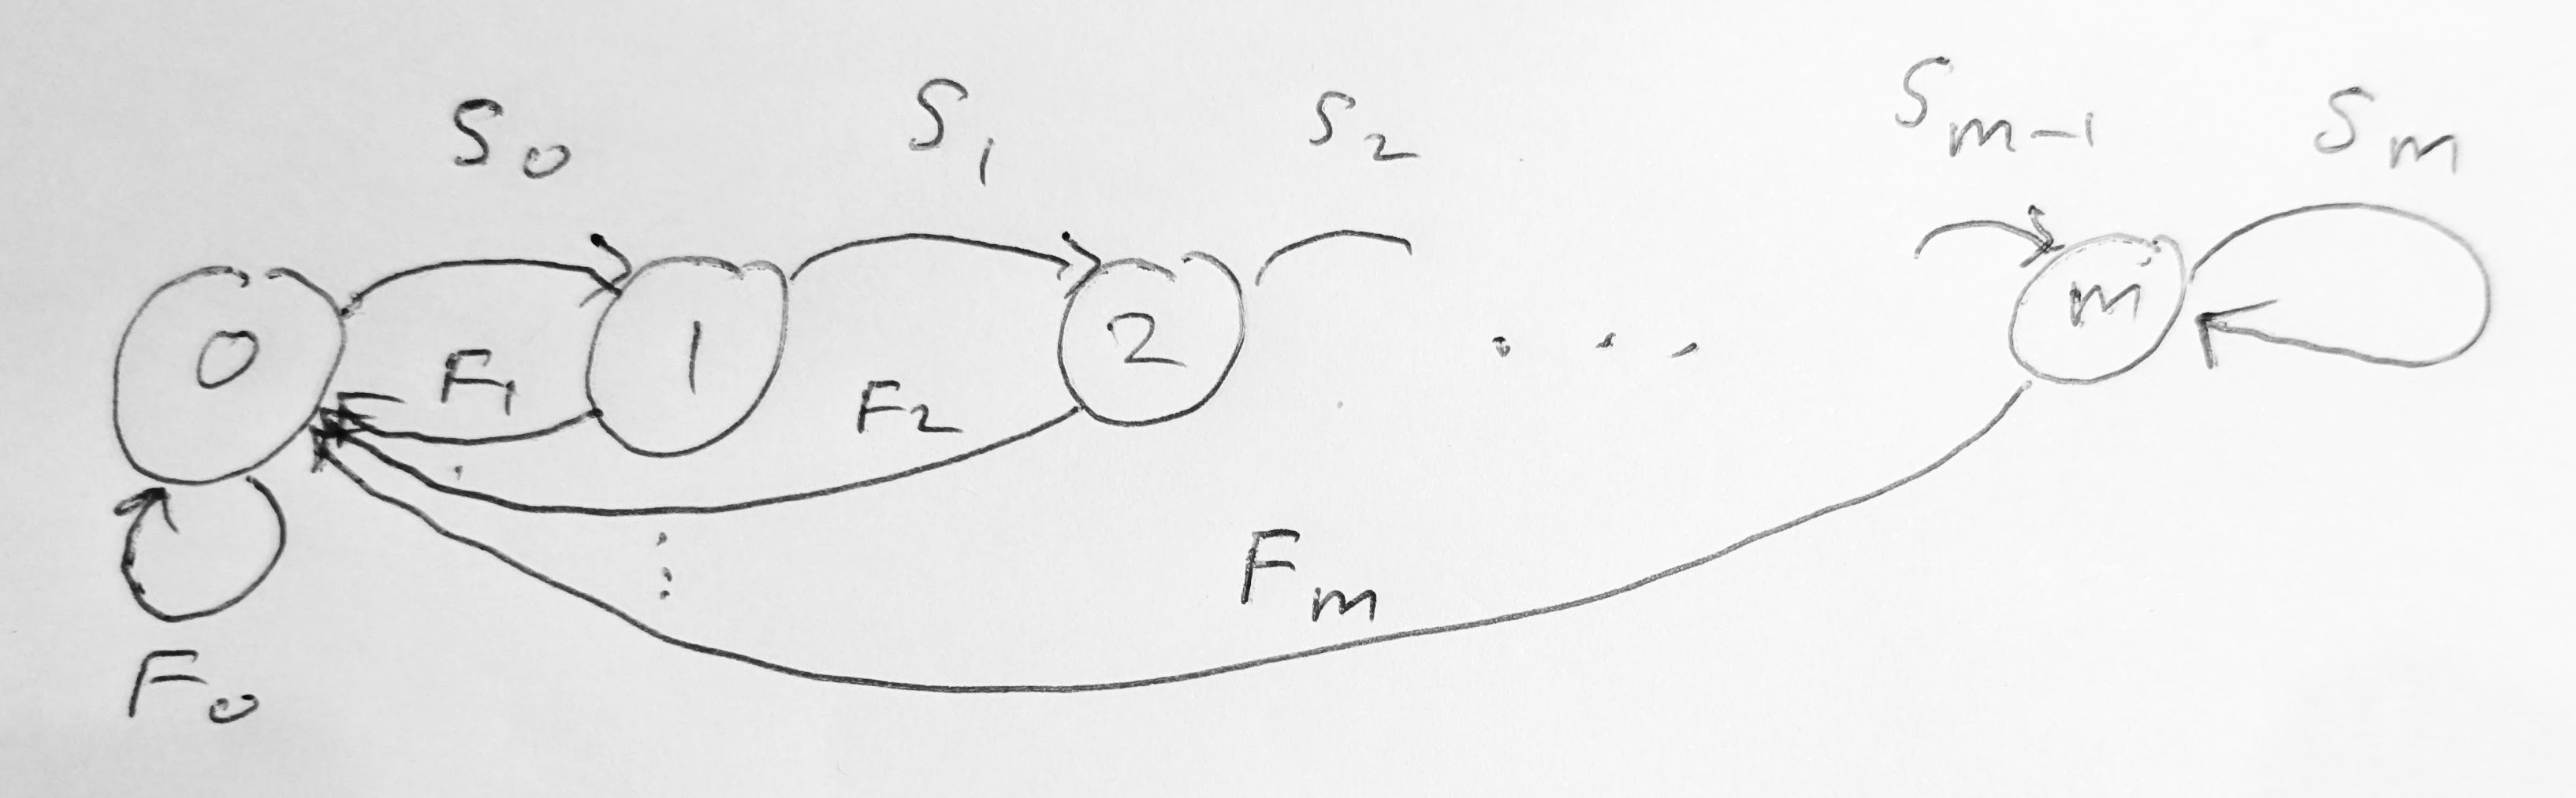 S0 S1 S2 Sm-1 Sm
0 1 2 . . . m
F1 F2
⋮
Fm
F0